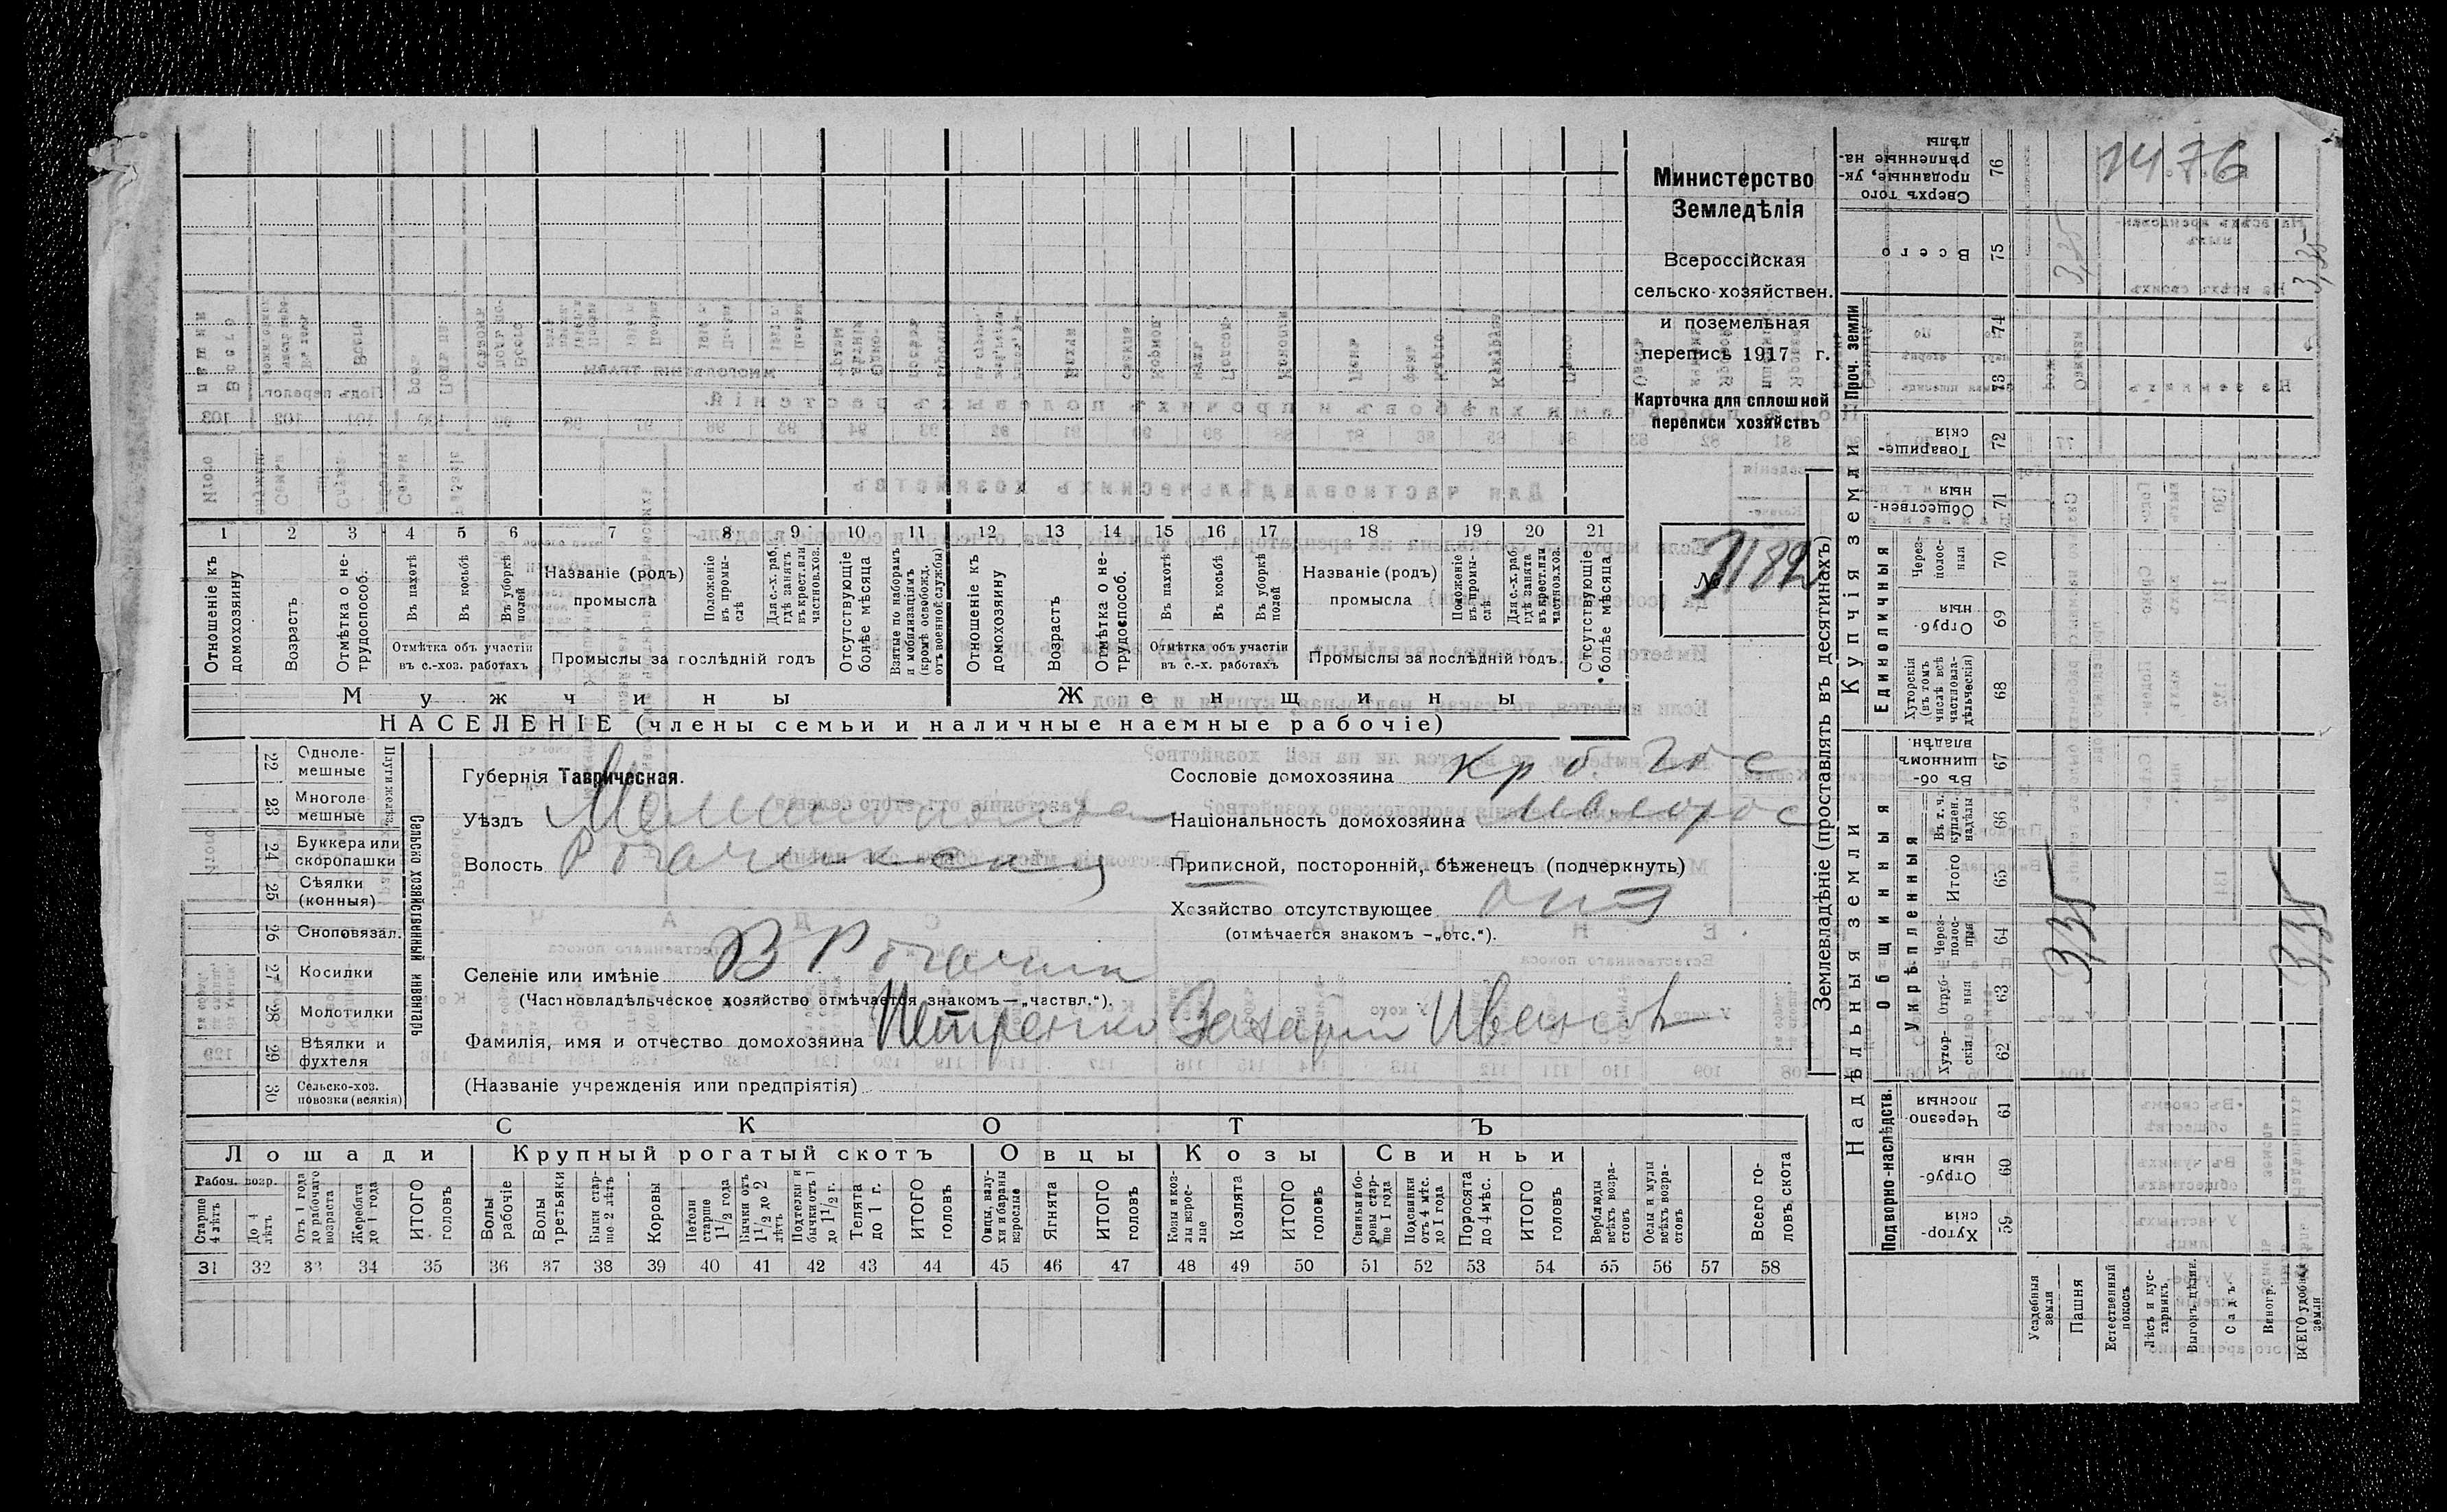 Министерство
Земледѣлія
Всероссійская
сельско-хозяйствен.
и поземельная
перепись 1917 г.
Карточка для сплошной
переписи хозяйствъ
№ 1182
1476
1 2 3 4 5 6 7 8 9 10 11 12 13 14 15 16 17 18 19 20 21
Отношеніе къ домохозяину
Возрастъ
Отмѣтка о не-трудоспособ.
Въ пахотѣ
Въ косьбѣ
Въ уборкѣ полей
Отмѣтка объ участіи въ с.-хоз. работахъ
Названіе (родъ) промысла
Положеніе въ промы-слѣ
Для с.-х. раб. гдѣ занятъ въ крест. или частнов. хоз.
Промыслы за послѣдній годъ
Отсутствующіе болѣе мѣсяца
Взятые по наборамъ и мобилизаціямъ (кромѣ освобожд. отъ военной службы)
Отношеніе къ домохозяину
Возрастъ
Отмѣтка о не-трудоспособ.
Въ пахотѣ
Въ косьбѣ
Въ уборкѣ полей
Отмѣтка объ участіи въ с.-х. работахъ
Названіе (родъ) промысла
Положеніе въ промы-слѣ
Для с.-х. раб. гдѣ занята въ крест. или частнов. хоз.
Промыслы за послѣдній годъ.
Отсутствующіе болѣе мѣсяца.
Мужчины
Женщины
НАСЕЛЕНІЕ (члены семьи и наличные наемные рабочіе)
Сельско хозяйственный инвентарь
22 Одноле-мешные
23 Многоле мешные
24 Буккера или скоропашки
25 Сѣялки (конныя)
26 Сноповязал.
27 Косилки
28 Молотилки
29 Вѣялки и фухтеля
30 Сельско-хоз. повозки (всякія)
Губернія Таврическая.
Уѣздъ
Волость
Селеніе или имѣніе В Рогачик
(Частновладѣльческое хозяйство отмѣчается знакомъ —„частвл.“).
Фамилія, имя и отчество домохозяина Петренко Захарій Иванов
(Названіе учрежденія или предпріятія)
Сословіе домохозяина
Національность домохозяина малорос
Приписной, посторонній, бѣженецъ (подчеркнуть)
Хозяйство отсутствующее
(отмѣчается знакомъ —„отс.“).
СКОТЪ
Лошади
Крупный рогатый скотъ
Овцы
Козы
Свиньи
Рабоч. возр.
Старше 4 лѣтъ
До 4 лѣтъ
Отъ 1 года до рабочаго возраста
Жеребята до 1 года
ИТОГО головъ
Волы рабочіе
Волы третьяки
Быки стар-ше 2 лѣтъ
Коровы
Нетели старше 1 1/2 года
Бычки отъ 1 1/2 до 2 лѣтъ
Подтелки и бычки отъ 1 до 1 1/2 г.
Телята до 1 г.
ИТОГО головъ
Овцы, валу-хи и бараны взрослые
Ягнята
ИТОГО головъ
Козы и коз-лы взрос-лые
Козлята
ИТОГО головъ
Свиньи и бо-ровы стар-ше 1 года
Подсвинки отъ 4 мѣс. до 1 года
Поросята до 4 мѣс.
ИТОГО головъ
Верблюды всѣхъ возра-стовъ
Ослы и мулы всѣхъ возра-стовъ
Всего го-ловъ скота
31 32 33 34 35 36 37 38 39 40 41 42 43 44 45 46 47 48 49 50 51 52 53 54 55 56 57 58
Землевладѣніе (проставлять въ десятинахъ)
Надѣльныя земли
Купчія земли
Проч. земли
Подворно-наслѣдств.
Общинныя
Укрѣпленныя
Единоличныя
Хутор-скія 59
Отруб-ныя 60
Черезпо-лосныя 61
Хутор-скія 62
Отруб-ныя 63
Через-полос-ныя 64
Итого 65
Въ т. ч. куплен. надѣлы 66
Въ об-щинномъ владѣн. 67
Хуторскія (въ томъ числѣ всѣ частновла-дѣльческія) 68
Отруб-ныя 69
Через-полос-ныя 70
Обществен-ныя 71
Товарище-скія 72
73
74
Всего 75
Сверхъ того проданные, ук-рѣпленные на-дѣлы 76
Усадебныя земли
Пашня
Естественный покосъ
Лѣсъ и кус-тарникъ
Выгонъ
Садъ
Виногр.
ВСЕГО удобной земли
3,35
3,35
3,35
3,35